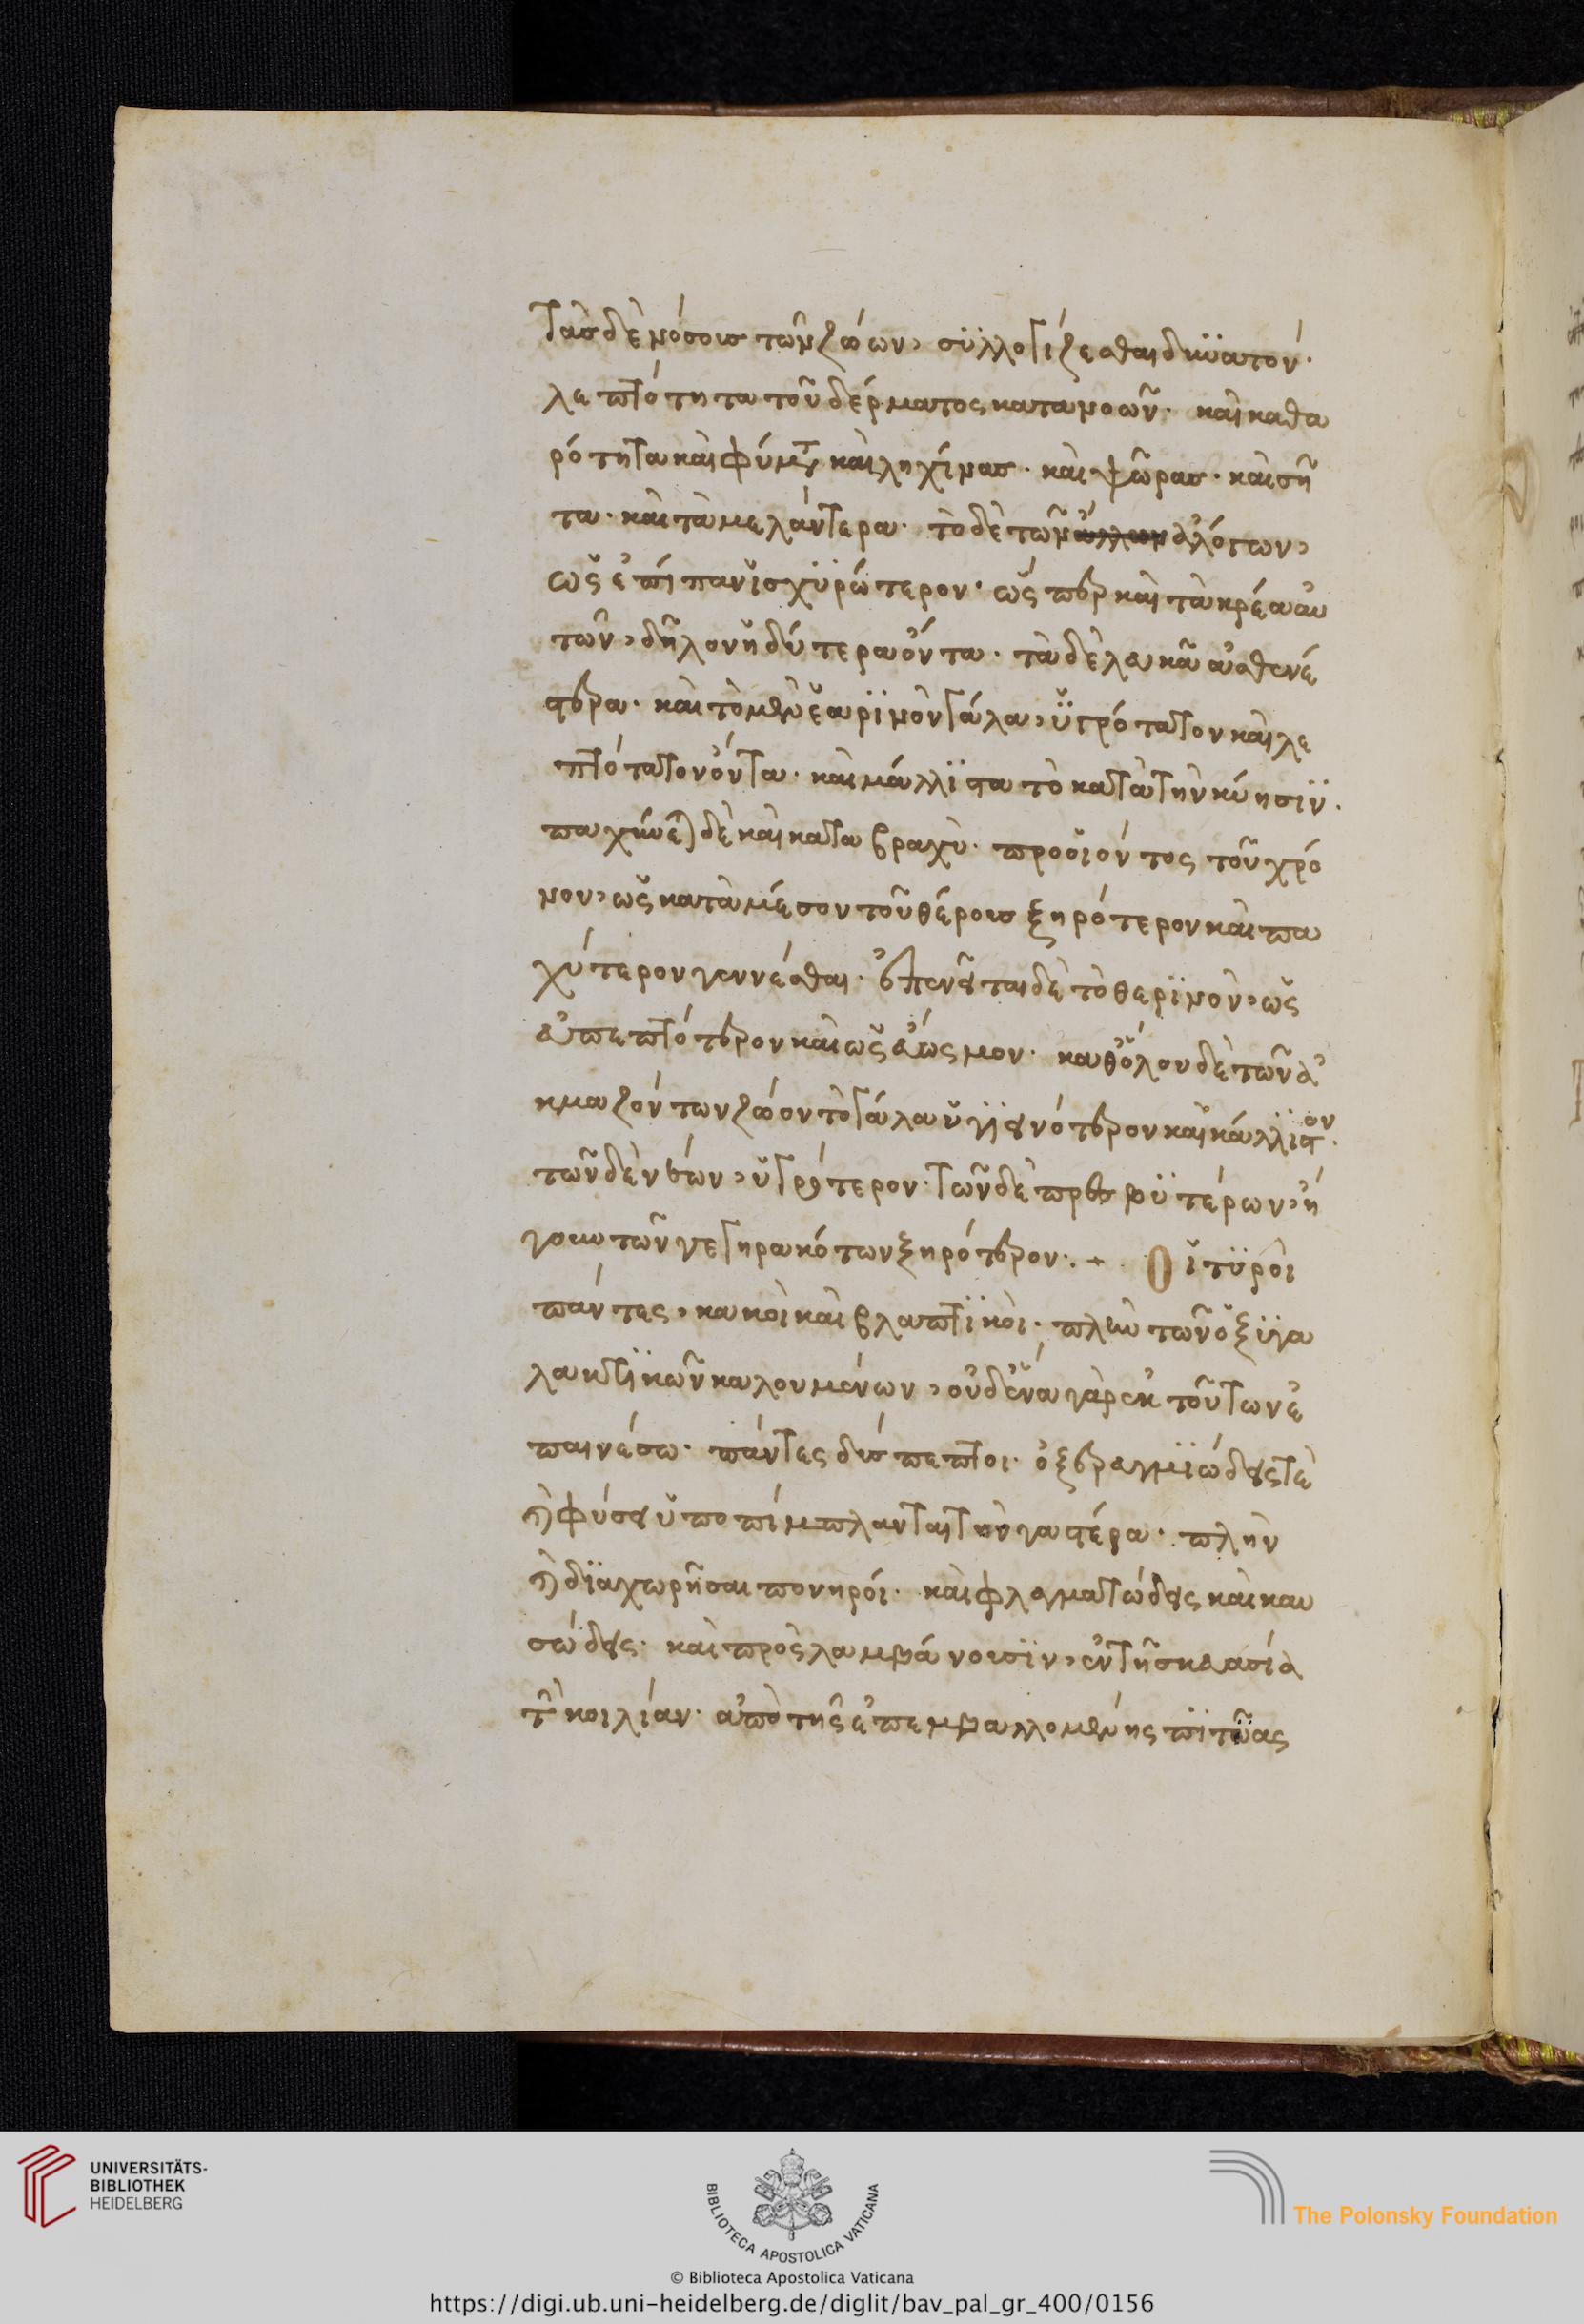 Τὰσ δὲ νόσουσ τῶν ζώων, συλλογίζεσθαι δυνατόν·
λεπτότητα τοῦ δέρματος κατανοῶν· καὶ καθα
ρότητα καὶ φύμτ καὶ ληχῖνασ· καὶ ψῶρασ· καὶ ση
τα· καὶ τὰ μελάντερα· τὸ δὲ τῶν ἀλόγων,
ὡς ἐπίπαν ἰσχϋρώτερον· ὥς περ καὶ τὰ κρέα αὐ
τῶν, δῆλον ἡδύτερα ὄντα· τὰ δὲ λευκὰ ἀσθενέ
στερα· καὶ τὸ μὲν ἐαρϊνὸν γάλα, ὑγρότατον καὶ λε
πτότατον ὄντα· καὶ μάλλιστα τὸ κατὰ τὴν κύησϊν·
παχύνεται δὲ καὶ κατα βραχὺ· προσϊόντος τοῦ χρό
νου, ὡς κατὰ μέσον τοῦ θέρουσ ξηρότερον καὶ πα
χύτερον γεννέσθαι· ἐπενεῖται δὲ τὸ θερϊνὸν, ὡς
εὐπεπτότερον καὶ ὡς εὔωσμον· καθόλου δὲ τῶν ἀ
κμαζόντων ζώον τὸ γάλα ὑγϊεινότερον καὶ κάλλϊστον·
τῶν δὲ νέων, ὑγρότερον· τῶν δὲ πρεσβϋτέρων, ἤ
γουν τῶν γεγηρακότων ξηρότερον· + Οἱ τϋροὶ
πάντες, κακοὶ καὶ βλαπτϊκοὶ· πλὴν τῶν ὀξϋγα
λακτϊκῶν καλουμένων, οὐδένα γὰρ ἐκ τοῦτων ἐ
παινέσω· πάντες δύσπεπτοι· ὀξερεγμϊώδεις τὲ
καὶ φύσει ὑποπίμπλανται τὴν γαστέρα· πλὴν
καὶ δϊαχωρῆσαι πονηρόι· καὶ φλεγματώδεις καὶ καυ
σώδεις· καὶ προσλαμβάνουσϊν, ἐν τῆ σκευασία
τ κοιλίαν· ἀπὸ τῆς ἐπεμβαλλομένης πϊτύας
UNIVERSITÄTS-
BIBLIOTHEK
HEIDELBERG
BIBLIOTECA APOSTOLICA VATICANA
The Polonsky Foundation
© Biblioteca Apostolica Vaticana
https://digi.ub.uni-heidelberg.de/diglit/bav_pal_gr_400/0156